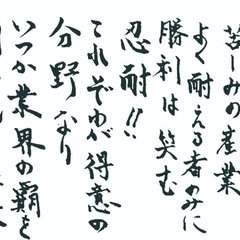 苦しみの産業
よく耐える者のみに
勝利は笑む
忍耐!!
これぞわが得意の
分野なり
いつか業界の覇を